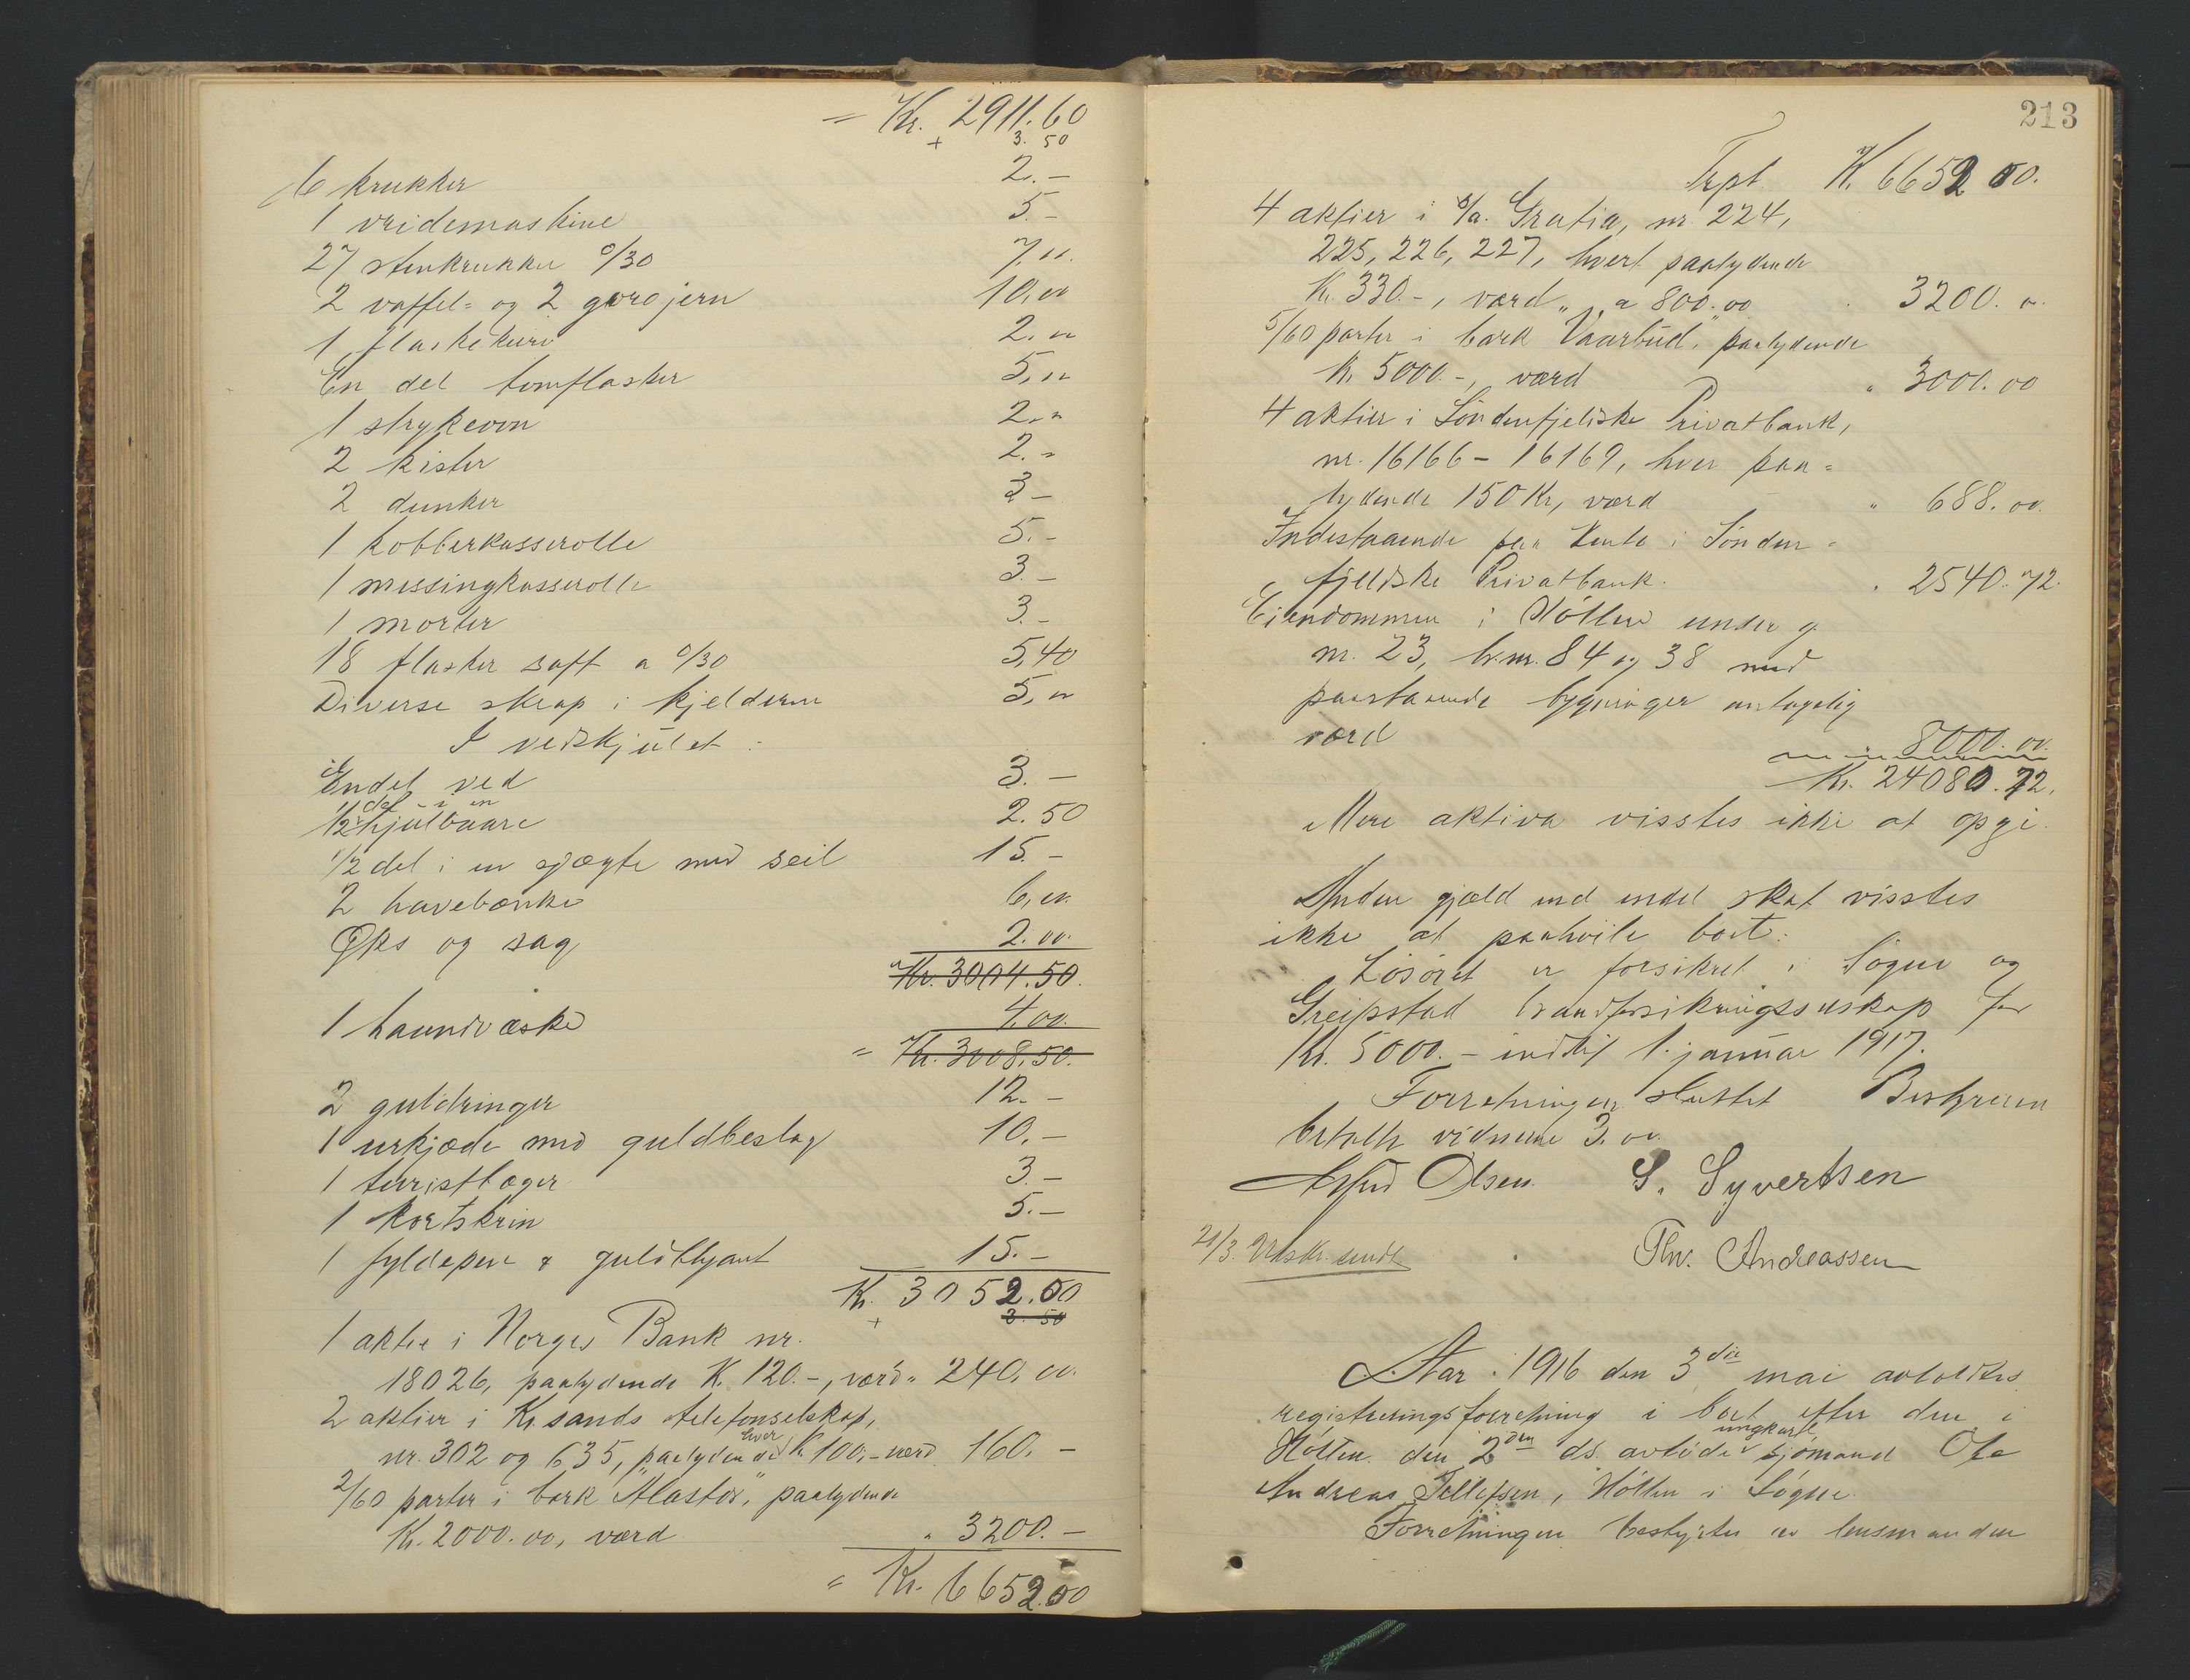 = Kr. 2911.60
+ 3. 50
6 krukker 2.-
1 vridemaskine 5.-
27 stenkrukker 0/30 7.00.
2 vaffel- og 2 gorojern 10,00
1 flaskekurv 2.00
En del tomflasker 5,00
1 strykeovn 2.00
2 kister 2.-
2 dunker 3-
1 kobberkasserolle 5.-
1 messingkasserolle 3.-
1 morter 3.-
18 flasker saft a 0/30 5,40
Diverse skrap i kjelderen 5,00
I vedskjulet:
Endel ved 3.-
1/2 del i en
hjulbaare 2.50
1/2 del i en sjægte med seil 15.-
2 havebænke 6,00.
Øks og sag 2.00.
Kr. 3004.50.
1 haandvæske 4.00.
= Kr. 3008,50.
2 guldringer 12.-
1 urkjæde med guldbeslag 10.-
1 turistbæger 3.-
1 kortskrin 5.-
1 fyldepen & guldblyant 15.-
Kr. 3052.00
+ 3. 50
1 aktie i Norges Bank nr.
18026, paalydende K. 120.-, værd " 240,00.
2 aktier i Kr.sands telefonselskap,
nr. 302 og 635, paalydende hver K 100,- værd 160.-
2/60 parter i bark "Alastor", paalydende
Kr. 2000.00, værd " 3200.-
= Kr. 6652.00
213
Trpt. K. 6652 00.
4 aktier i s/a. Gratia, nr. 224,
225, 226, 227, hvert paalydende
Kr. 330.-, værd " a 800.00 3200. 00.
5/60 parter i bark "Vaarbud", paalydende
Kr. 5000.-, værd " 3000.00
4 aktier i Søndenfjeldske Privatbank,
nr. 16166 - 16169, hver paa-
lydende 150 Kr, værd " 688.00.
Indestaaende paa rente i Sønden-
fjeldske Privatbank. " 2540.72.
Eiendommen i Høllen under g.
nr. 23, br.nr. 84 og 38 med
paastaaende bygninger antagelig
værd 8000.00.
Kr. 24080.72.
Mere aktiva visstes ikke at opgi.
Anden gjæld end endel skat visstes
ikke at paahvile boet.
Løsøret er forsikret i Søgne og
Greipstad brandforsikringsselskap for
Kr. 5000.- indtil 1. januar 1917.
Forretningen sluttet Bestyreren
betalte vidnerne 3.00
Alfred Olsen. S. Syvertsen
21/3. Utskr. sendt Thv. Andreassen
Aar 1916 den 3die mai avholdtes
registreringsforretning i boet efter den i
Høllen den 2den ds. avdøde ungkarl sjømand Ole
Andreas Tellefsen, Høllen i Søgne.
Forretningen bestyrtes av lensmanden